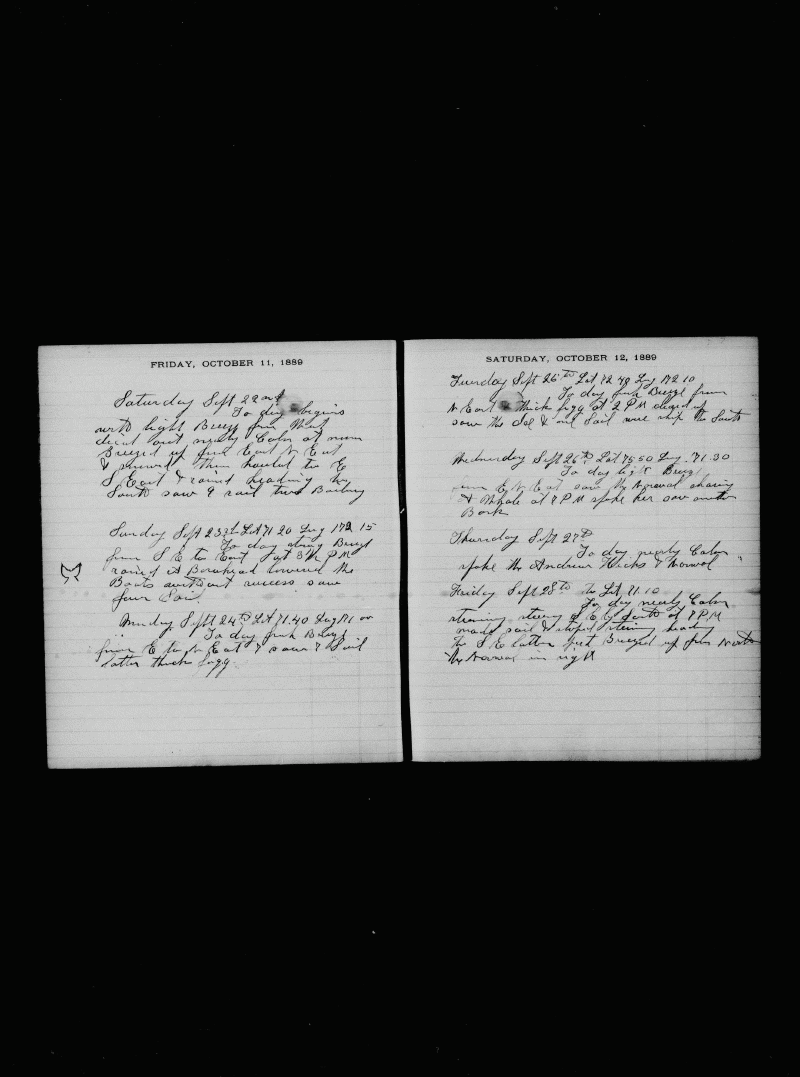 FRIDAY, OCTOBER 11, 1889
Saturday Sept 22nd
To day begins
with light Breeze from West
out nearly Calm at noon
Breezed up from East N East
& then hauled to E
S East & raind heading to
South saw 9 sail two
Sunday Sept 23th Lat 71 20 Long 172 15
To day strong Breeze
from S E to East at 3 P M
raised A Bowhead lowered the
Boats without success saw
four Sail
Monday Sept 24th Lat 71.40 Long 171 00
To day fresh Breeze
from E to N East & saw 7 Sail
latter thick fogg
SATURDAY, OCTOBER 12, 1889
Tuesday Sept 26th Lat 72 48 Long 172 10
To day fresh Breeze from
N East & thick fogg at 2 P M
saw the Ice & one Sail ship the South
Wednesday Sept 26th Lat 75 50 Long 171.30
To day light Breeze
from E N East saw the Narwal
A Whale at 7 P M spoke her saw another
Bark
Thursday Sept 27th
To day nearly Calm
spoke the Andrew Hicks & Narwal
Friday Sept 28th Lat 71.10
To day nearly Calm
steaming E by South at 7 P M
made sail & stoped steaming heading
the S E latter part Breezed up from North
the Narwal in sight